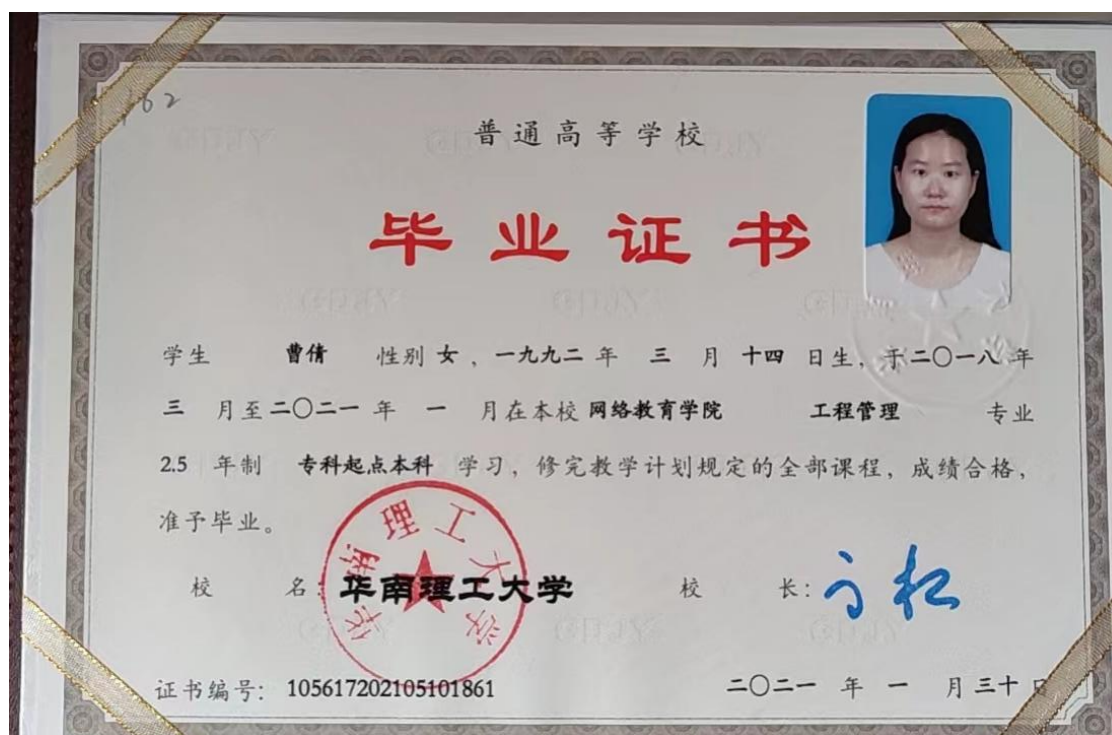 162
普通高等学校
毕业证书
学生 曹倩 性别 女 ，一九九二 年 三 月 十四 日生，于二〇一八 年
三 月至二〇二一 年 一 月在本校 网络教育学院 工程管理 专业
2.5 年制 专科起点本科 学习，修完教学计划规定的全部课程，成绩合格，
准予毕业。
华南理工大学
校 名：华南理工大学 校 长：
证书编号：105617202105101861 二〇二一 年 一 月 三十 日